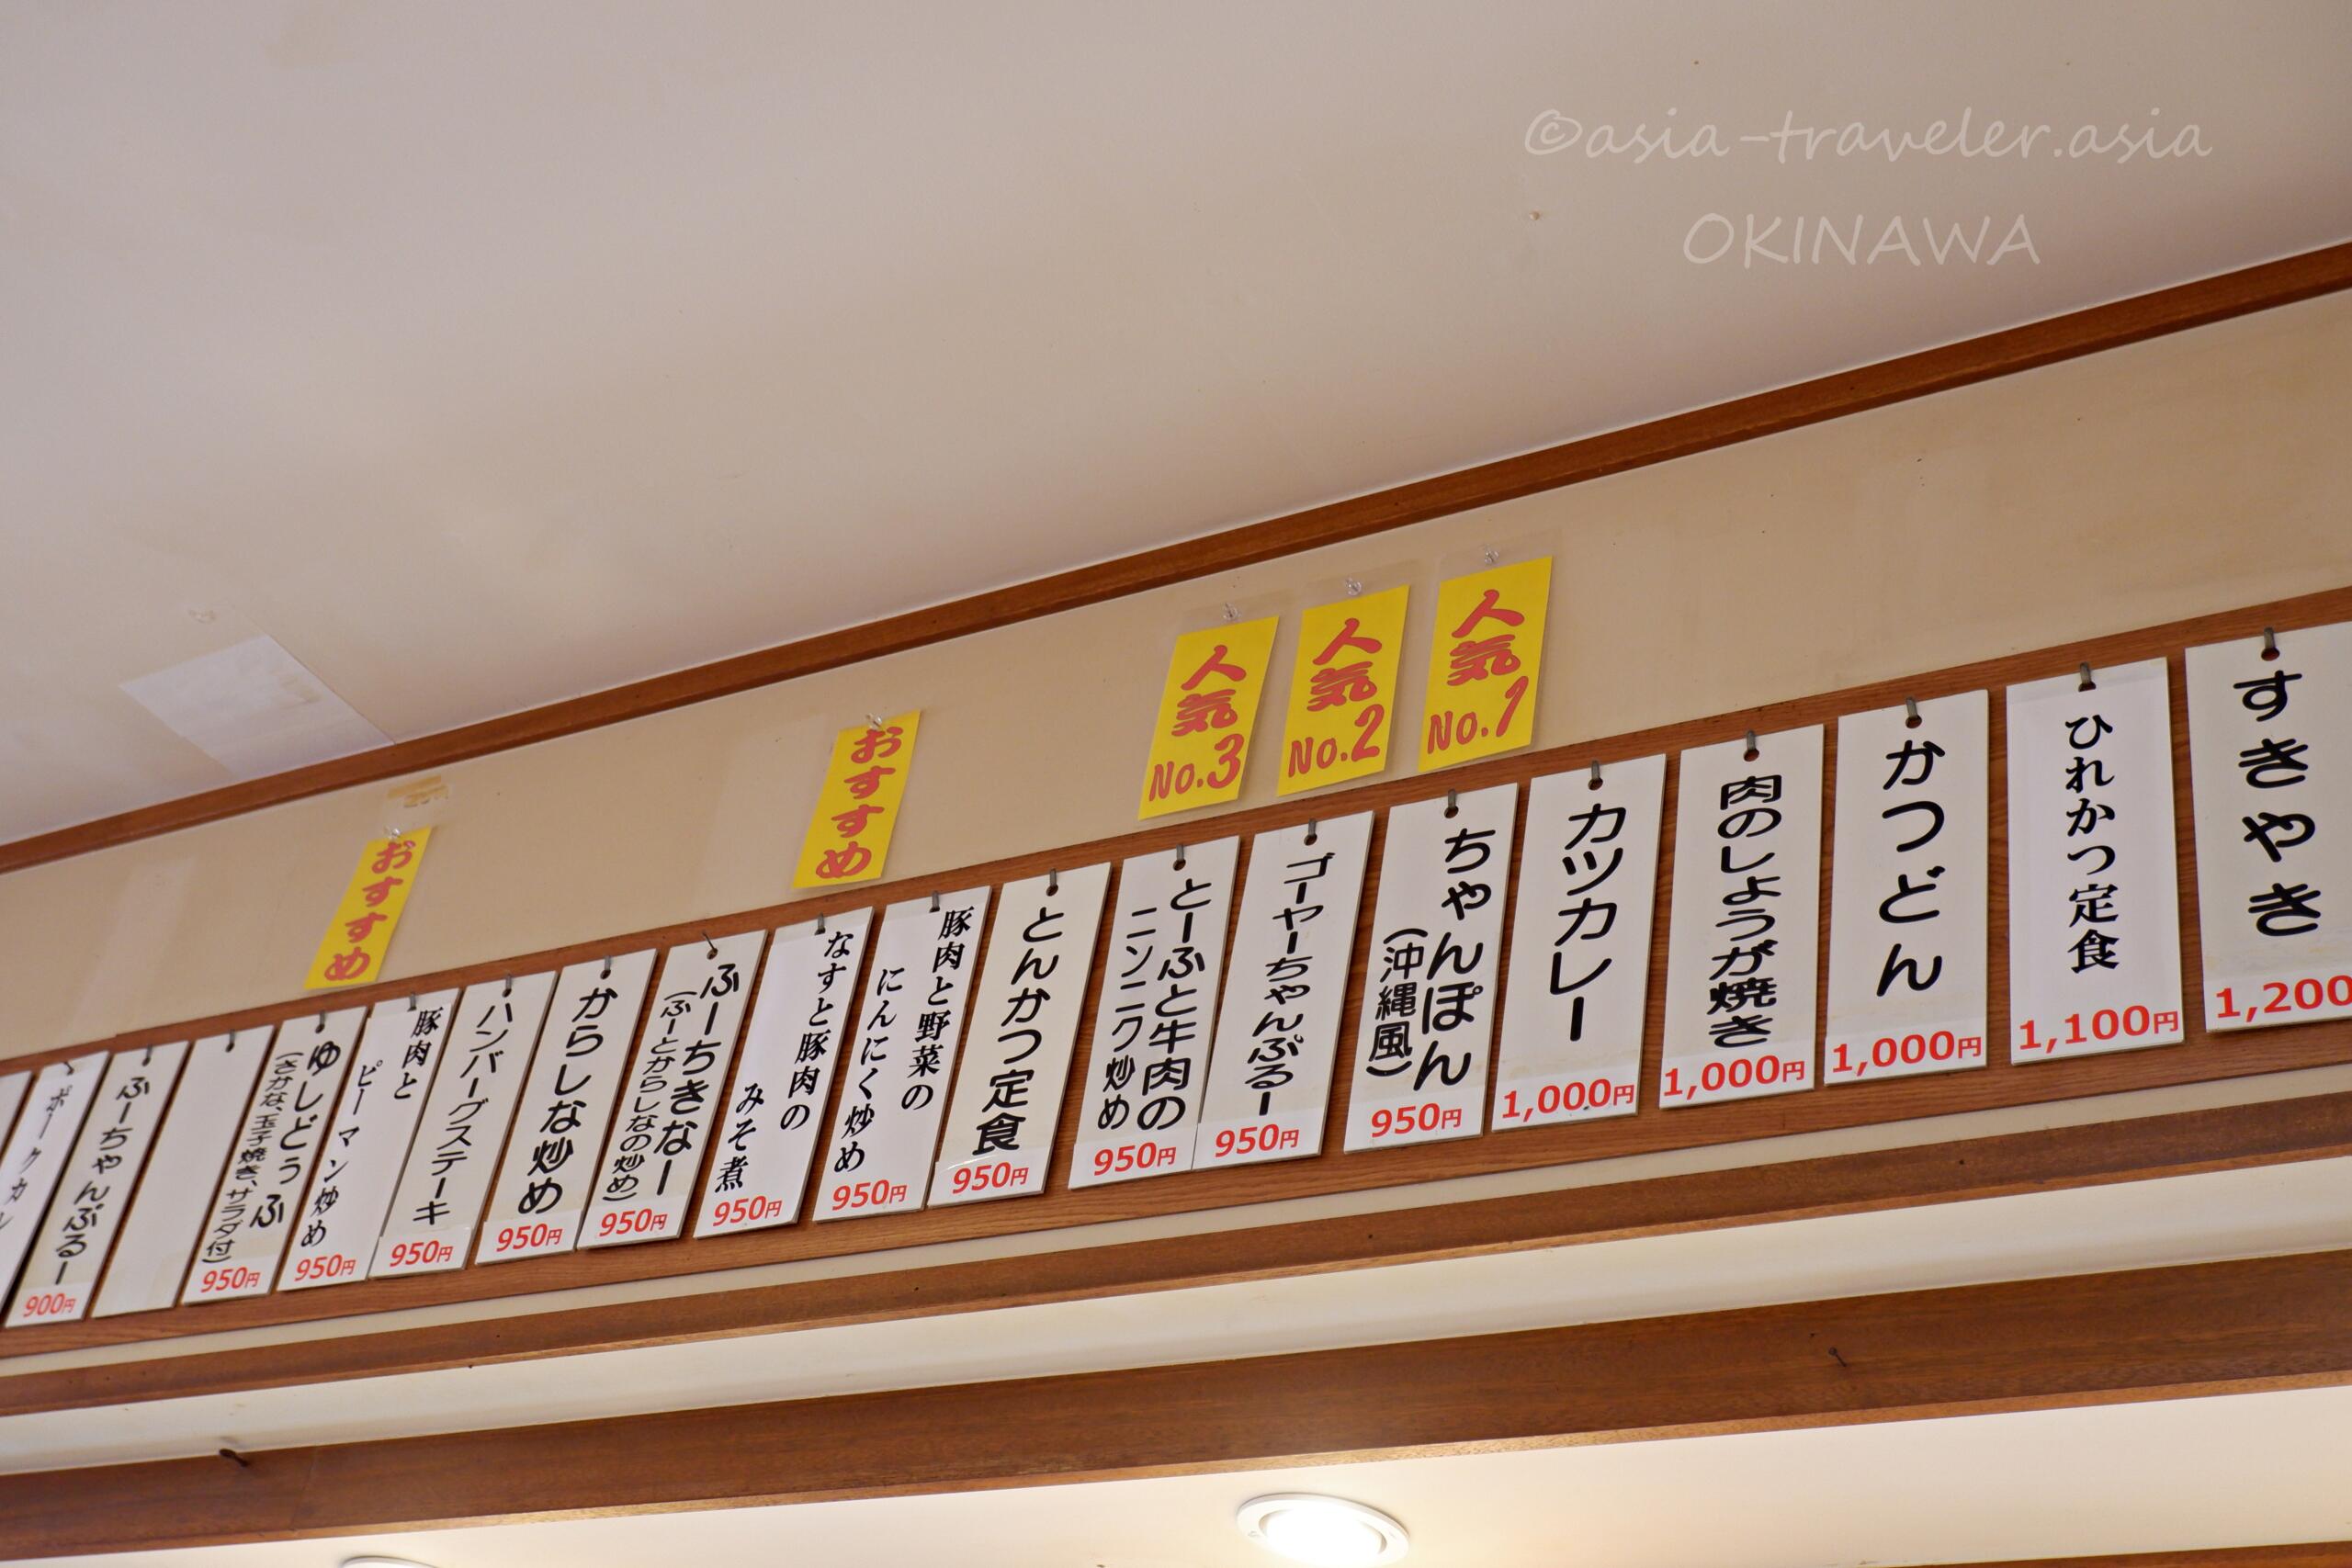 ©asia-traveler.asia
OKINAWA
人気
No.1
人気
No.2
人気
No.3
おすすめ
おすすめ
すきやき
1,200
ひれかつ定食
1,100円
かつどん
1,000円
肉のしょうが焼き
1,000円
カツカレー
1,000円
ちゃんぽん
(沖縄風)
950円
ゴーヤーちゃんぷるー
950円
とーふと牛肉の
ニンニク炒め
950円
とんかつ定食
950円
豚肉と野菜の
にんにく炒め
950円
なすと豚肉の
みそ煮
950円
ふーちきなー
(ふーとからしなの炒め)
950円
からしな炒め
950円
ハンバーグステーキ
950円
豚肉と
ピーマン炒め
950円
ゆしどうふ
(さかな、玉子焼き、サラダ付)
950円
ふーちゃんぷるー
900円
ポークカレ